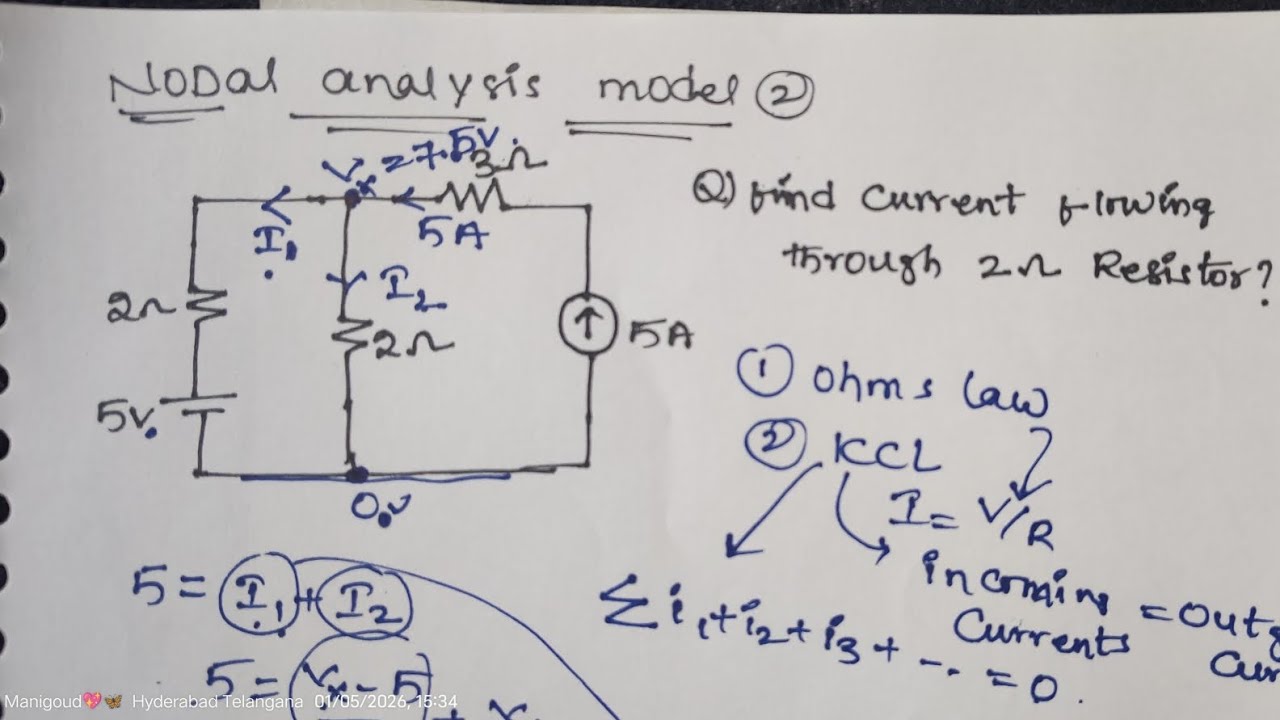 NODal analysis model ②
Vx = 7.5V.
3Ω
I1
5A
I2
2Ω
2Ω
5A
5V.
0.V
Q) find current flowing
through 2Ω Resistor?
① ohms law
② KCL
I = V/R
incoming = outg
currents cur
Σ i1+i2+i3+ -.. = 0.
5 = I1 + I2
5 = Vx - 5
Manigoud💖🦋 Hyderabad Telangana 01/05/2026, 15:34